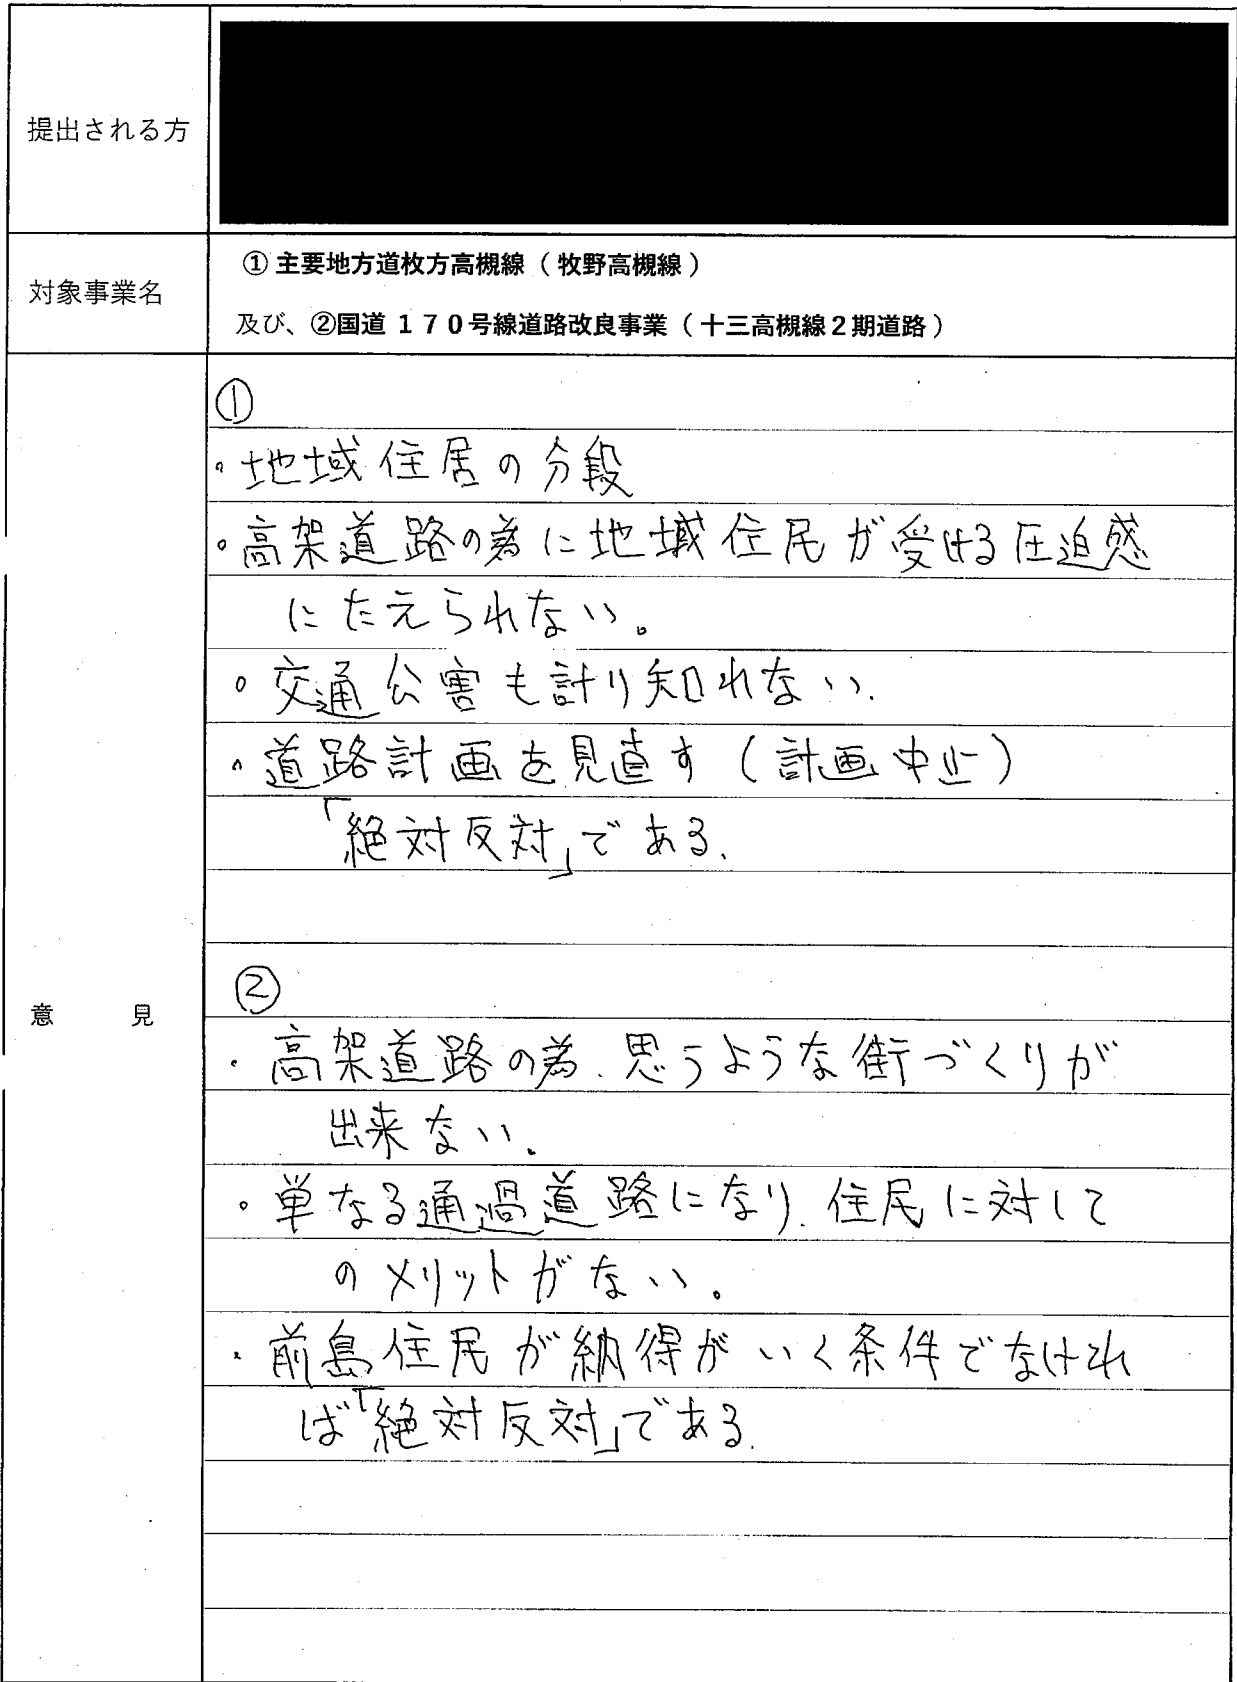 提出される方
対象事業名
① 主要地方道枚方高槻線（牧野高槻線）
及び、②国道１７０号線道路改良事業（十三高槻線２期道路）
意見
①
・地域住居の分段
・高架道路の為に地域住民が受ける圧迫感
にたえられない。
・交通公害も計り知れない.
・道路計画を見直す（計画中止）
「絶対反対」である.
②
・高架道路の為、思うような街づくりが
出来ない。
・単なる通過道路になり、住民に対して
のメリットがない。
・前島住民が納得がいく条件でなけれ
ば「絶対反対」である.